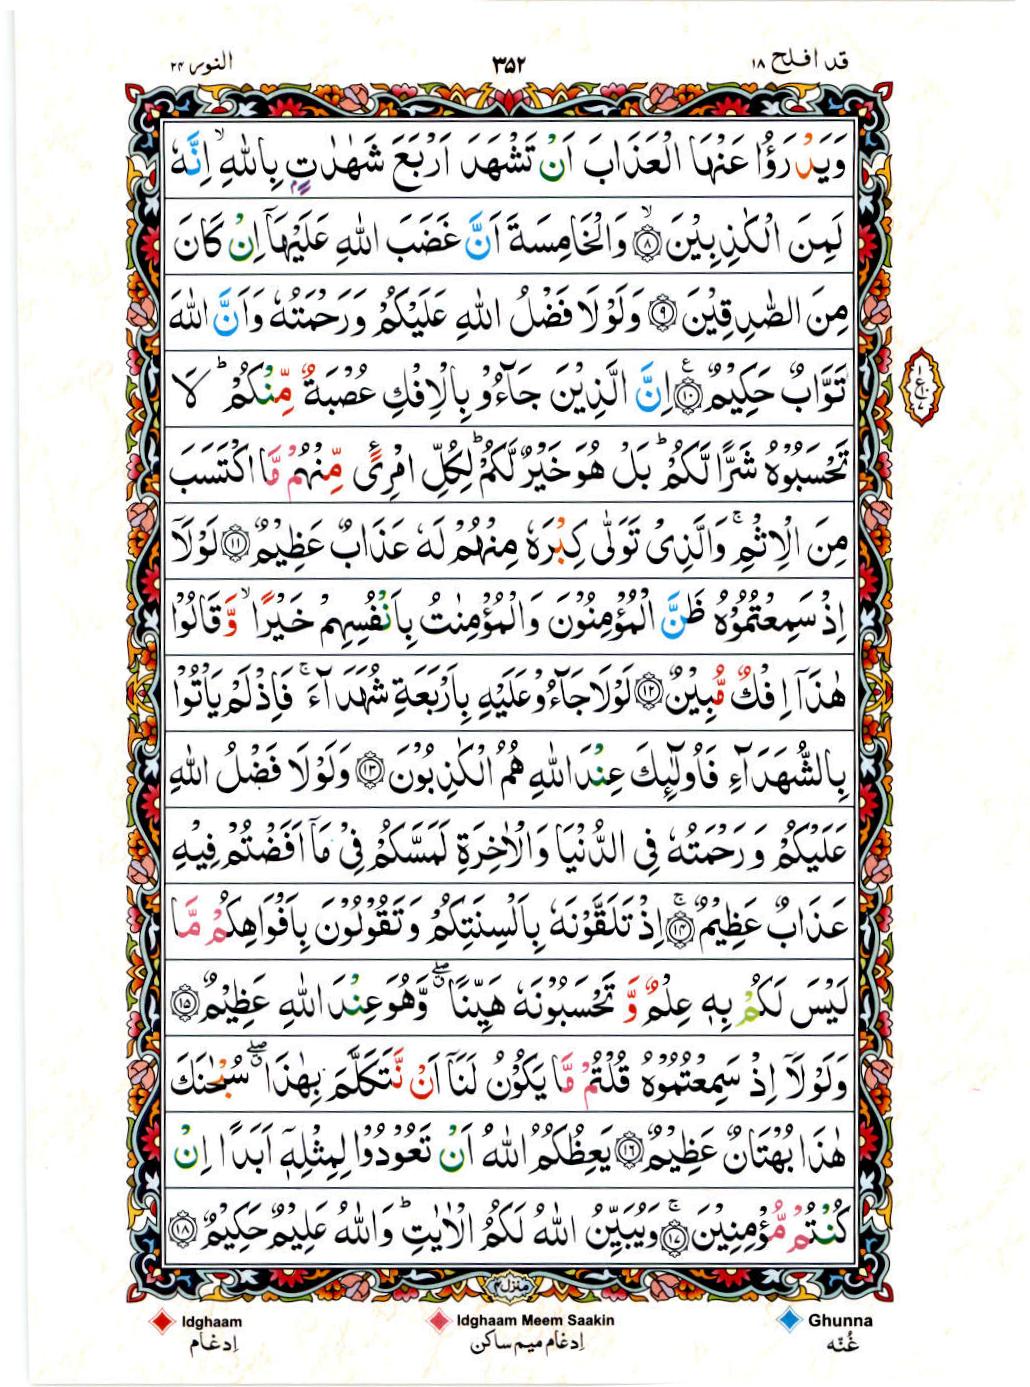 قد افلح ۱۸
۳۵۲
النور ۲۴
وَيَدْرَؤُا عَنْهَا الْعَذَابَ اَنْ تَشْهَدَ اَرْبَعَ شَهٰدٰتٍۭ بِاللّٰهِۙ اِنَّهٗ
لَمِنَ الْكٰذِبِيْنَ ۙ‏﴿۸﴾ وَالْخَامِسَةَ اَنَّ غَضَبَ اللّٰهِ عَلَيْهَاۤ اِنْ كَانَ
مِنَ الصّٰدِقِيْنَ ﴿۹﴾ وَلَوْلَا فَضْلُ اللّٰهِ عَلَيْكُمْ وَرَحْمَتُهٗ وَاَنَّ اللّٰهَ
تَوَّابٌ حَكِيْمٌ ﴿۱۰﴾ اِنَّ الَّذِيْنَ جَآءُوْ بِالْاِفْكِ عُصْبَةٌ مِّنْكُمْ ؕ لَا
تَحْسَبُوْهُ شَرًّا لَّكُمْ ؕ بَلْ هُوَ خَيْرٌ لَّكُمْ ؕ لِكُلِّ امْرِئٍ مِّنْهُمْ مَّا اكْتَسَبَ
مِنَ الْاِثْمِ ۚ وَالَّذِىْ تَوَلّٰى كِبْرَهٗ مِنْهُمْ لَهٗ عَذَابٌ عَظِيْمٌ ﴿۱۱﴾ لَوْلَاۤ
اِذْ سَمِعْتُمُوْهُ ظَنَّ الْمُؤْمِنُوْنَ وَالْمُؤْمِنٰتُ بِاَنْفُسِهِمْ خَيْرًا ۙ وَّقَالُوْا
هٰذَاۤ اِفْكٌ مُّبِيْنٌ ﴿۱۲﴾ لَوْلَا جَآءُوْ عَلَيْهِ بِاَرْبَعَةِ شُهَدَآءَ ۚ فَاِذْ لَمْ يَاْتُوْا
بِالشُّهَدَآءِ فَاُولٰٓئِكَ عِنْدَ اللّٰهِ هُمُ الْكٰذِبُوْنَ ﴿۱۳﴾ وَلَوْلَا فَضْلُ اللّٰهِ
عَلَيْكُمْ وَرَحْمَتُهٗ فِى الدُّنْيَا وَالْاٰخِرَةِ لَمَسَّكُمْ فِىْ مَاۤ اَفَضْتُمْ فِيْهِ
عَذَابٌ عَظِيْمٌ ۚ‏﴿۱۴﴾ اِذْ تَلَقَّوْنَهٗ بِاَلْسِنَتِكُمْ وَتَقُوْلُوْنَ بِاَفْوَاهِكُمْ مَّا
لَيْسَ لَكُمْ بِهٖ عِلْمٌ وَّتَحْسَبُوْنَهٗ هَيِّنًا ۖ ق وَّهُوَ عِنْدَ اللّٰهِ عَظِيْمٌ ﴿۱۵﴾
وَلَوْلَاۤ اِذْ سَمِعْتُمُوْهُ قُلْتُمْ مَّا يَكُوْنُ لَنَاۤ اَنْ نَّتَكَلَّمَ بِهٰذَا ۖ ق سُبْحٰنَكَ
هٰذَا بُهْتَانٌ عَظِيْمٌ ﴿۱۶﴾ يَعِظُكُمُ اللّٰهُ اَنْ تَعُوْدُوْا لِمِثْلِهٖۤ اَبَدًا اِنْ
كُنْتُمْ مُّؤْمِنِيْنَ ۚ‏﴿۱۷﴾ وَيُبَيِّنُ اللّٰهُ لَكُمُ الْاٰيٰتِ ؕ وَاللّٰهُ عَلِيْمٌ حَكِيْمٌ ﴿۱۸﴾
منزل۴
Ghunna
غُنّه
Idghaam Meem Saakin
اِدغام ميم ساكن
Idghaam
اِدغام